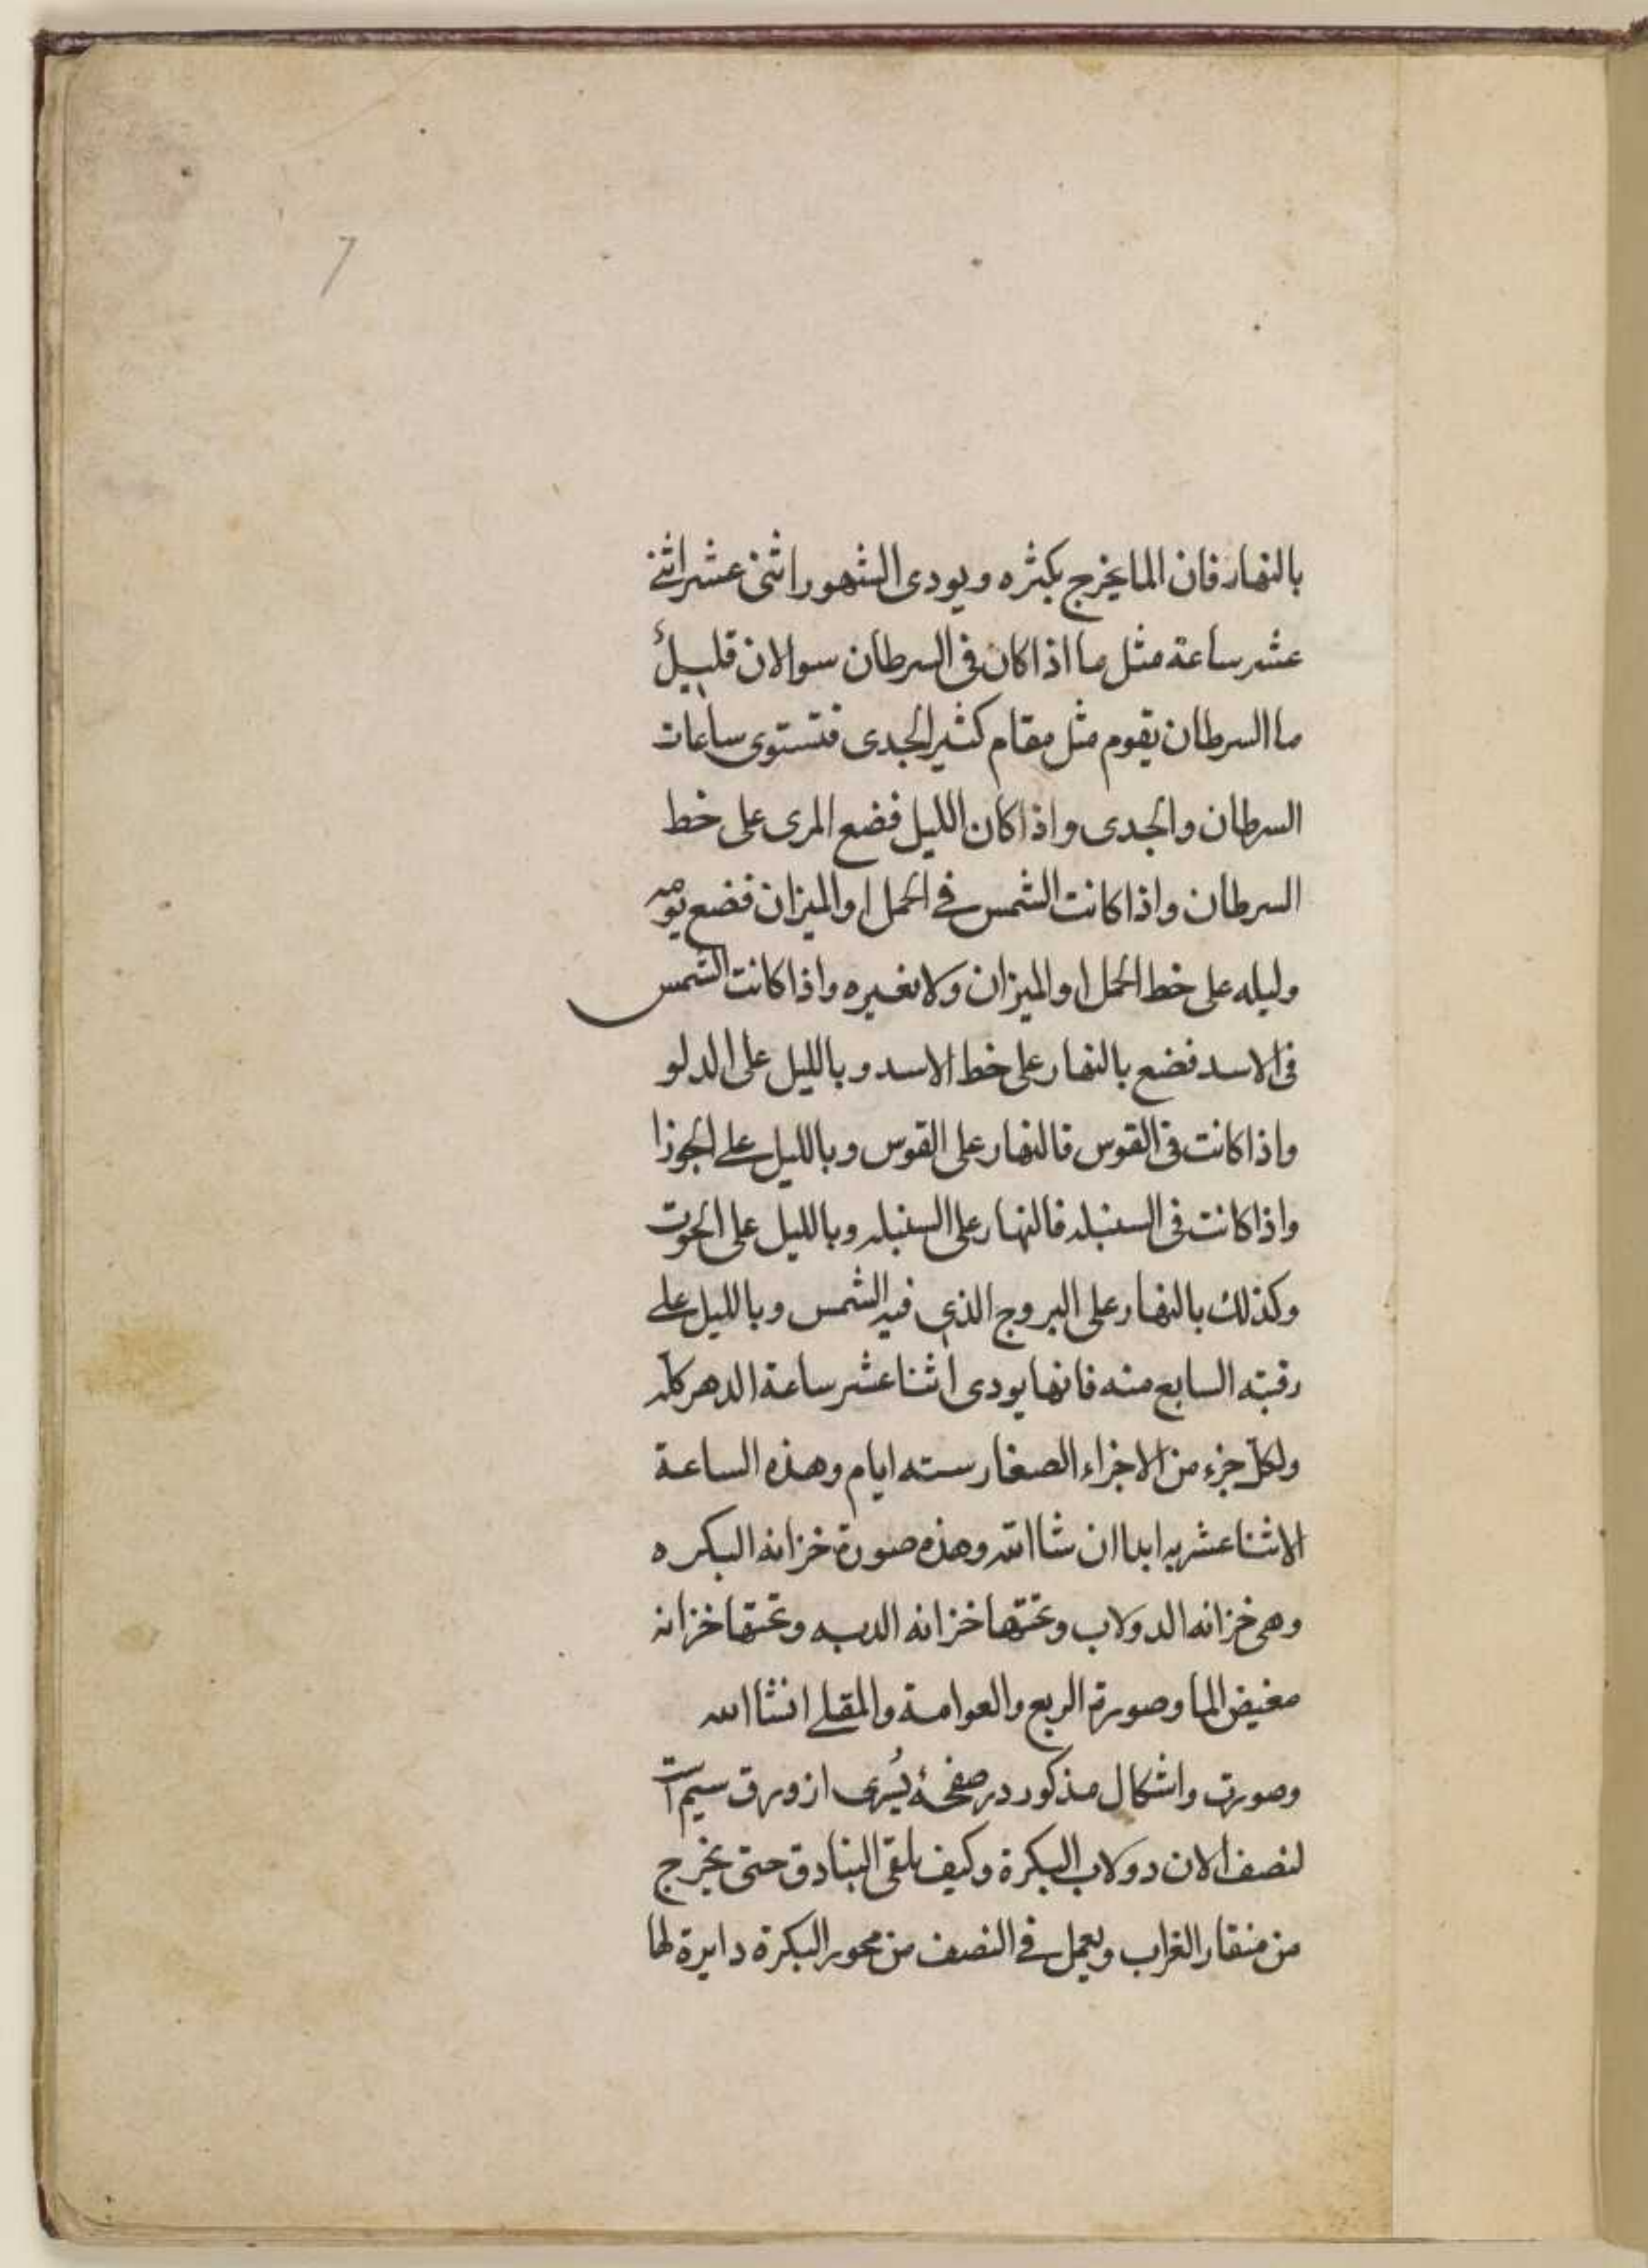 7
بالنهار فان الما يخرج بكثره ويودى الشهور اثنى عشر اثنے
عشر ساعة مثل ما اذا كان فى السرطان سوا لان قليل
ما السرطان يقوم مثل مقام كثير الجدى فتستوى ساعات
السرطان والجدى واذا كان الليل فضع المرى على خط
السرطان واذا كانت الشمس فے الحمل او الميزان فضع يومه
وليله على خط الحمل او الميزان ولا نغيره واذا كانت الشمس
فى الاسد فضع بالنهار على خط الاسد وبالليل على الدلو
واذا كانت فى القوس فالنهار على القوس وبالليل علے الجوزا
واذا كانت فى السنبله فالنهار على السنبله وبالليل على الحوت
وكذلك بالنهار على البروج الذى فيه الشمس وبالليل علے
رقبته السابع منه فانها يودى اثنا عشر ساعة الدهر كله
ولكل جزء من الاجزاء الصغار سته ايام وهذه الساعة
الاثنا عشريه ابدا ان شا الله وهذه صورة خزانه البكره
وهى خزانه الدولاب وتحتها خزانه الدبه وتحتها خزانه
مغيض الما وصورة الربع والعوامة والمقلے انشا الله
وصورت واشكال مذكور در صفحهٔ يُسرى از ورق سيم است
لنصف الان دولاب البكرة وكيف يلقى البنادق حتى يخرج
من منقار الغراب ويعمل فے النصف من محور البكرة دايرة لها